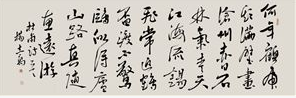 何年顧虎
頭滿壁畫
滄州赤日石
林氣青天
江海流錫
飛常近鶴
杯渡不驚
鷗似得廬
山路真隨
惠遠遊
杜甫詩